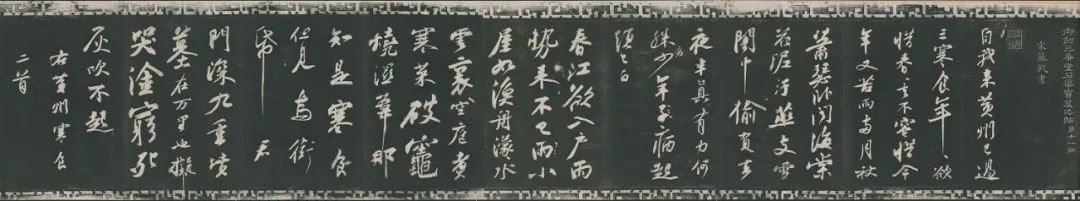 御刻三希堂石渠寶笈法帖第十一冊
宋蘇軾書
自我来黃州已過
三寒食年〻欲
惜春〻去不容惜今
年又苦雨兩月秋
蕭瑟卧聞海棠
花泥汙燕支雪
闇中偷負去
夜半真有力何
殊少年子病起
頭已白
春江欲入戶雨
勢来不已雨小
屋如漁舟濛〻水
雲裏空庖煮
寒菜破竈
燒濕葦那
知是寒食
但見烏銜
帋君
門深九重墳
墓在万里也擬
哭塗窮死
灰吹不起
右黃州寒食
二首